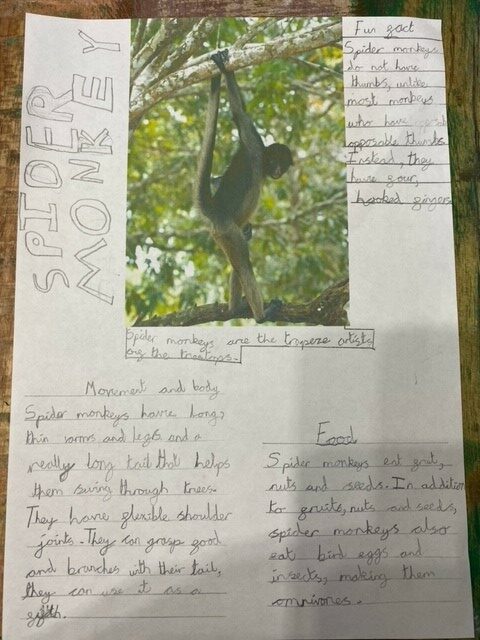 SPIDER
MONKEY
Fun fact
Spider monkeys
do not have
thumbs, unlike
most monkeys
who have
opposable thumbs.
Instead, they
have four,
hooked fingers
Spider monkeys are the trapeze artists
of the treetops.
Movement and body
Spider monkeys have long,
thin arms and legs and a
really long tail that helps
them swing through trees.
They have flexible shoulder
joints. They can grasp food
and branches with their tail,
they can use it as a
fifth.
Food
Spider monkeys eat fruit,
nuts and seeds. In addition
to fruits, nuts and seeds,
spider monkeys also
eat bird eggs and
insects, making them
omnivores.